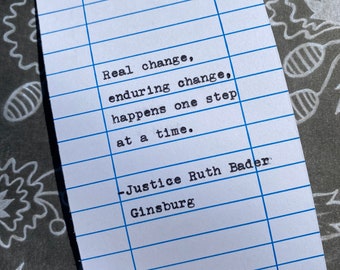 Real change,
enduring change,
happens one step
at a time.
-Justice Ruth Bader
Ginsburg